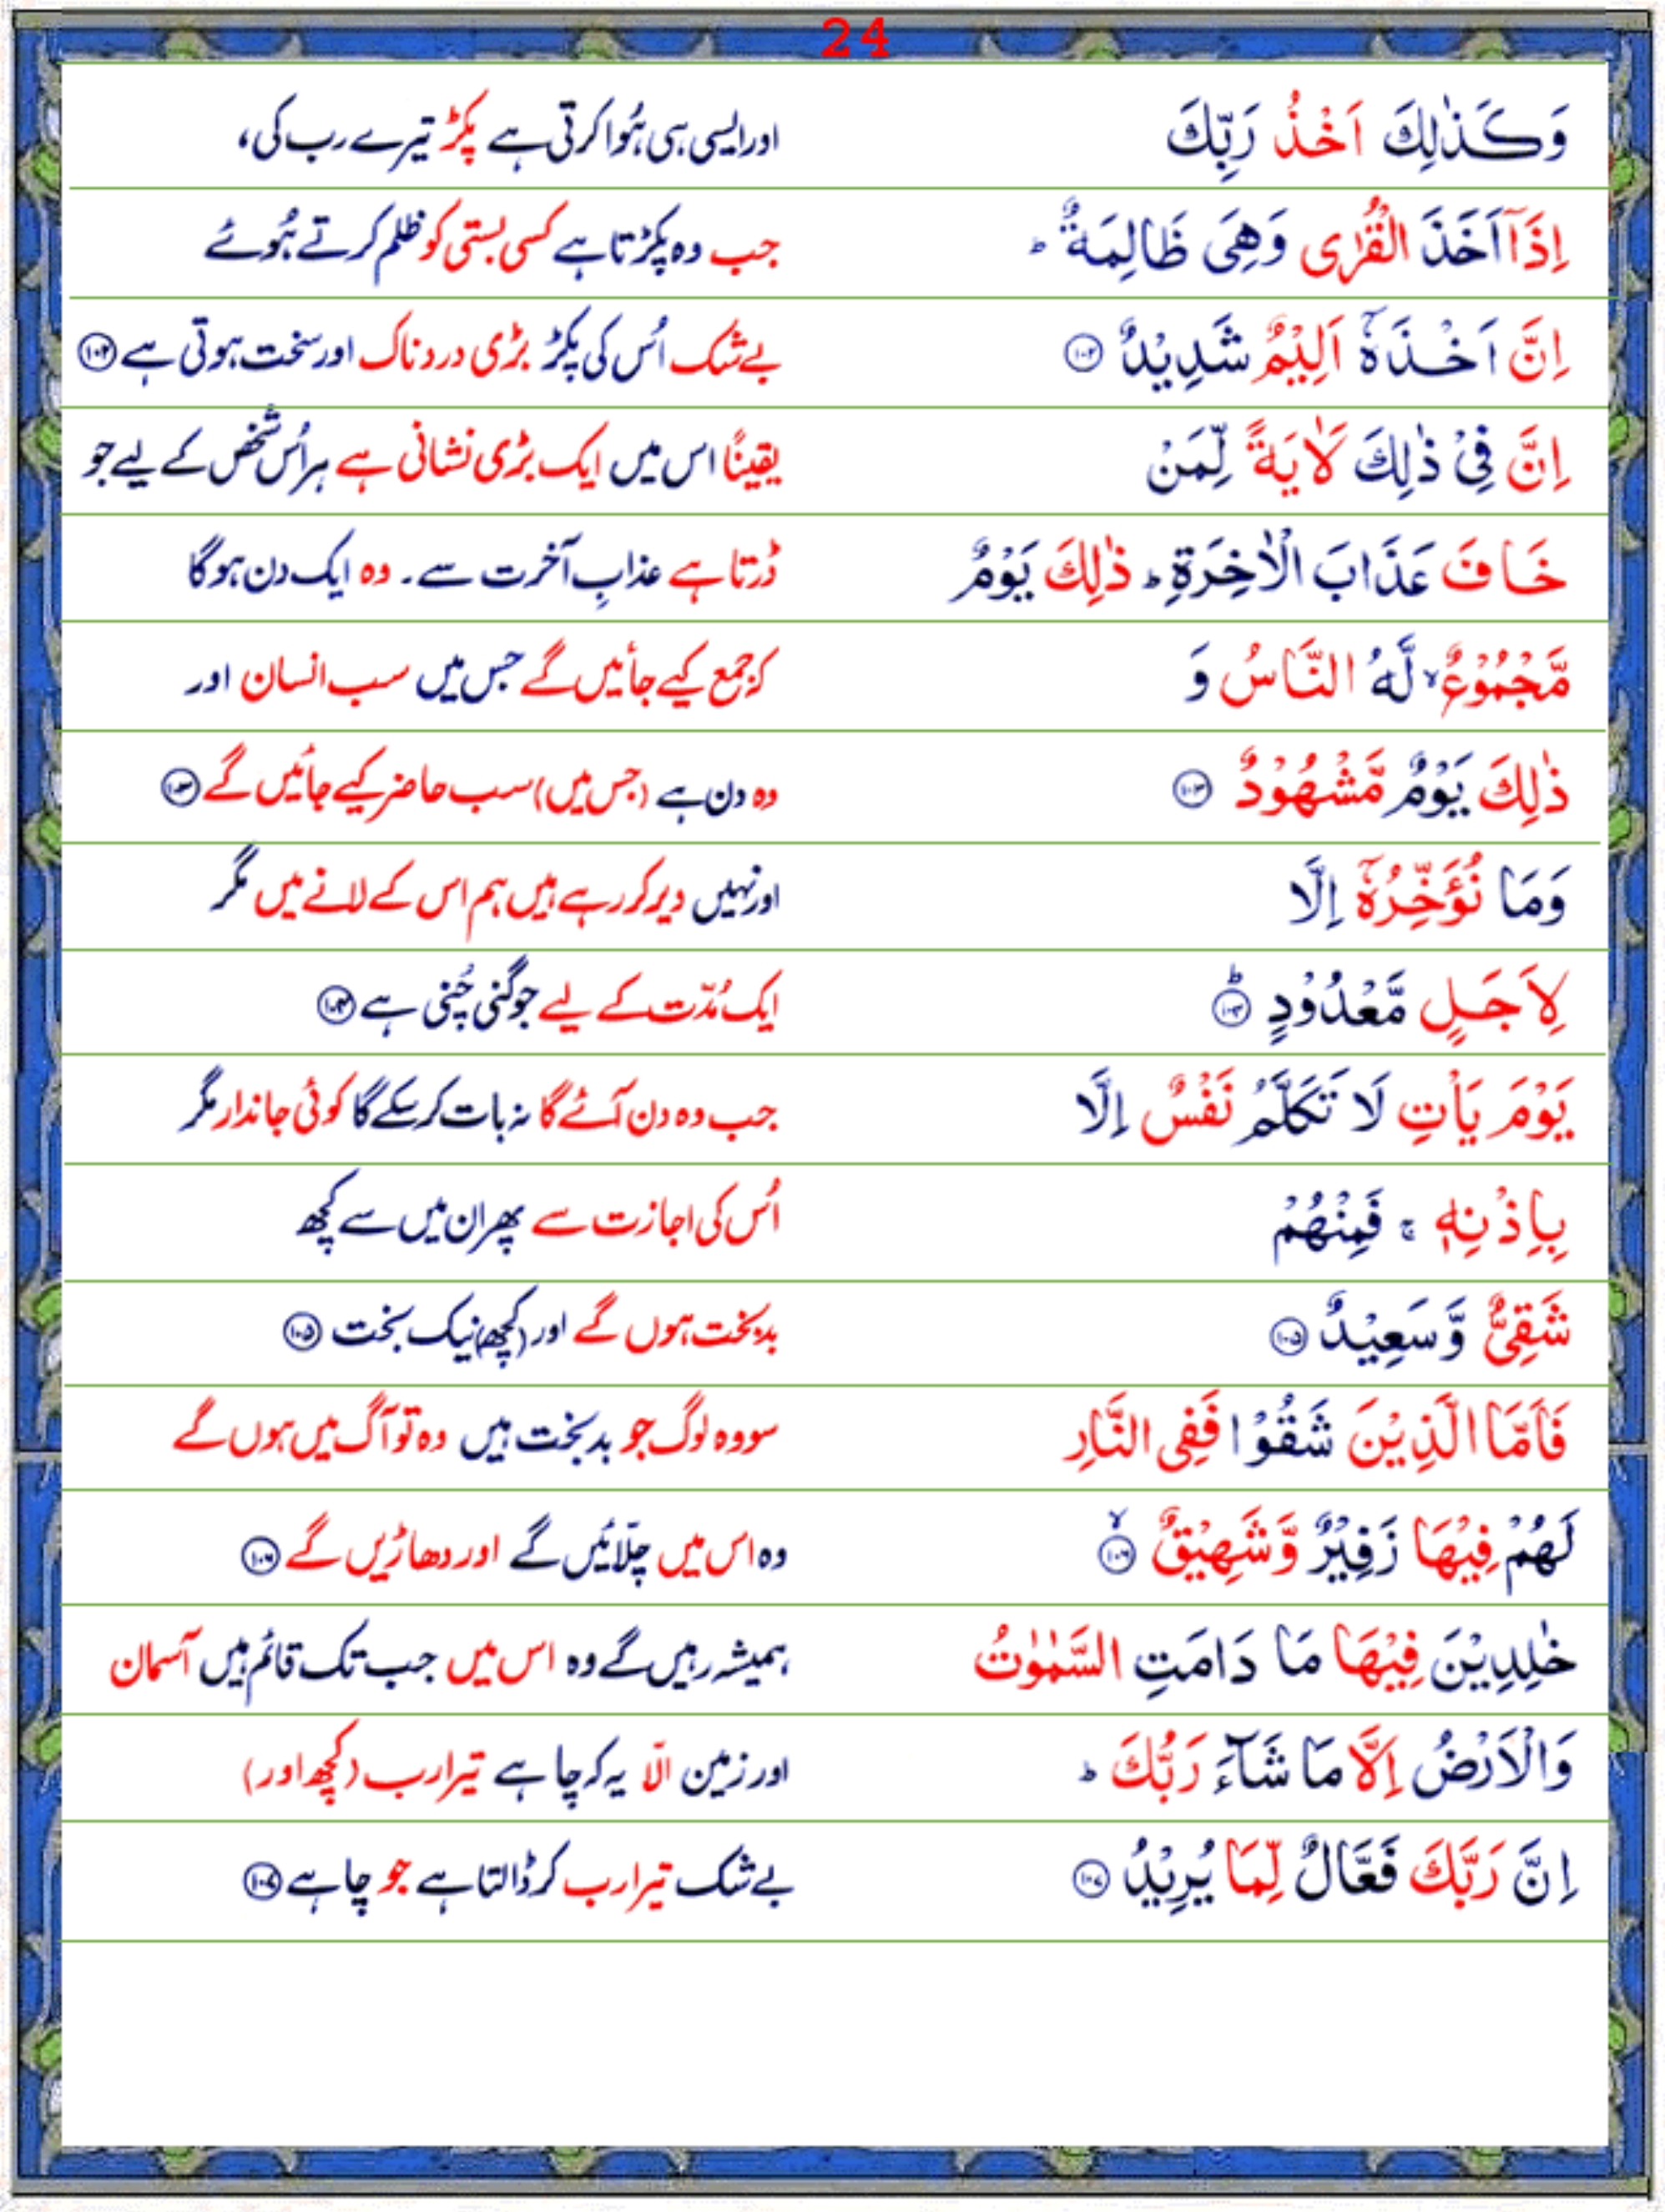 24
وَكَذٰلِكَ اَخْذُ رَبِّكَ اور ایسی ہی ہُوا کرتی ہے پکڑ تیرے رب کی،
اِذَآ اَخَذَ الْقُرٰى وَهِىَ ظَالِمَةٌ ؕ جب وہ پکڑتا ہے کسی بستی کو ظلم کرتے ہُوئے
اِنَّ اَخْذَهٗۤ اَلِيْمٌ شَدِيْدٌ ۝۱۰۲ بے شک اُس کی پکڑ بڑی دردناک اور سخت ہوتی ہے ۝۱۰۲
اِنَّ فِىْ ذٰلِكَ لَاٰيَةً لِّمَنْ یقینًا اس میں ایک بڑی نشانی ہے ہر اُس شخص کے لیے جو
خَافَ عَذَابَ الْاٰخِرَةِ ؕ ذٰلِكَ يَوْمٌ ڈرتا ہے عذابِ آخرت سے۔ وہ ایک دن ہوگا
مَّجْمُوْعٌ ۙ لَّهُ النَّاسُ وَ کہ جمع کیے جائیں گے جس میں سب انسان اور
ذٰلِكَ يَوْمٌ مَّشْهُوْدٌ ۝۱۰۳ وہ دن ہے (جس میں) سب حاضر کیے جائیں گے ۝۱۰۳
وَمَا نُؤَخِّرُهٗۤ اِلَّا اور نہیں دیر کر رہے ہیں ہم اس کے لانے میں مگر
لِاَجَلٍ مَّعْدُوْدٍ ؕ۝۱۰۴ ایک مُدّت کے لیے جو گنی چُنی ہے ۝۱۰۴
يَوْمَ يَاْتِ لَا تَكَلَّمُ نَفْسٌ اِلَّا جب وہ دن آئے گا نہ بات کرسکے گا کوئی جاندار مگر
بِاِذْنِهٖ ۚ فَمِنْهُمْ اُس کی اجازت سے پھر ان میں سے کچھ
شَقِىٌّ وَّسَعِيْدٌ ۝۱۰۵ بدبخت ہوں گے اور (کچھ) نیک بخت ۝۱۰۵
فَاَمَّا الَّذِيْنَ شَقُوْا فَفِى النَّارِ سو وہ لوگ جو بدبخت ہیں وہ تو آگ میں ہوں گے
لَهُمْ فِيْهَا زَفِيْرٌ وَّشَهِيْقٌ ۙ۝۱۰۶ وہ اس میں چلّائیں گے اور دھاڑیں گے ۝۱۰۶
خٰلِدِيْنَ فِيْهَا مَا دَامَتِ السَّمٰوٰتُ ہمیشہ رہیں گے وہ اس میں جب تک قائم ہیں آسمان
وَالْاَرْضُ اِلَّا مَا شَآءَ رَبُّكَ ؕ اور زمین الّا یہ کہ چاہے تیرا رب (کچھ اور)
اِنَّ رَبَّكَ فَعَّالٌ لِّمَا يُرِيْدُ ۝۱۰۷ بے شک تیرا رب کر ڈالتا ہے جو چاہے ۝۱۰۷